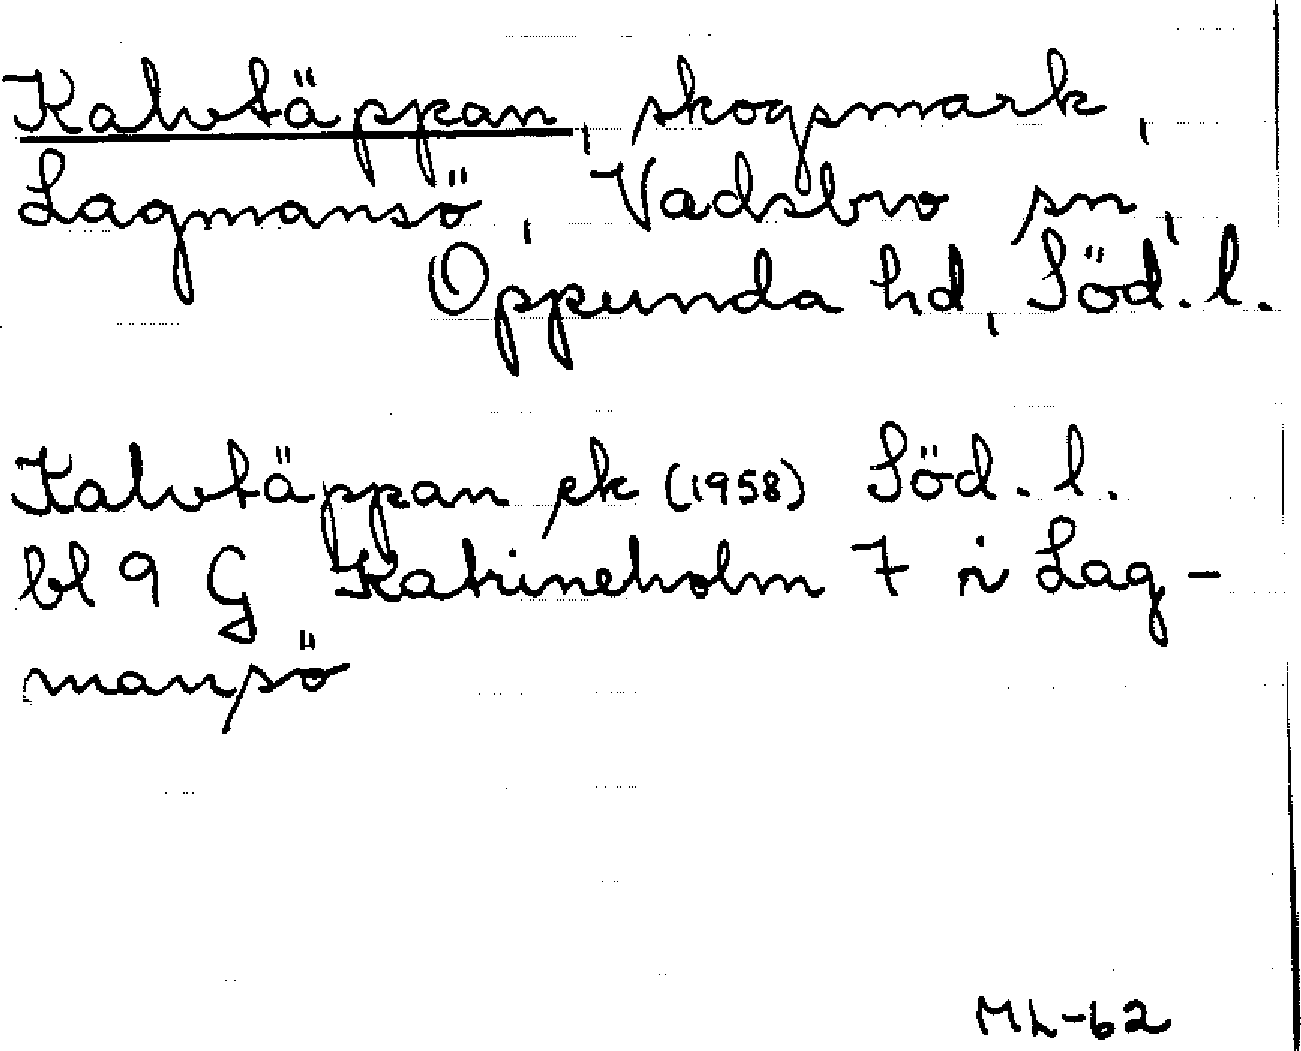 Kalvtäppan, skogsmark,
Lagmansö, Vadsbro sn,
Oppunda hd, Söd. l.
Kalvtäppan ek (1958) Söd. l.
bl 9 G Katrineholm 7 i Lag-
mansö
ML-62